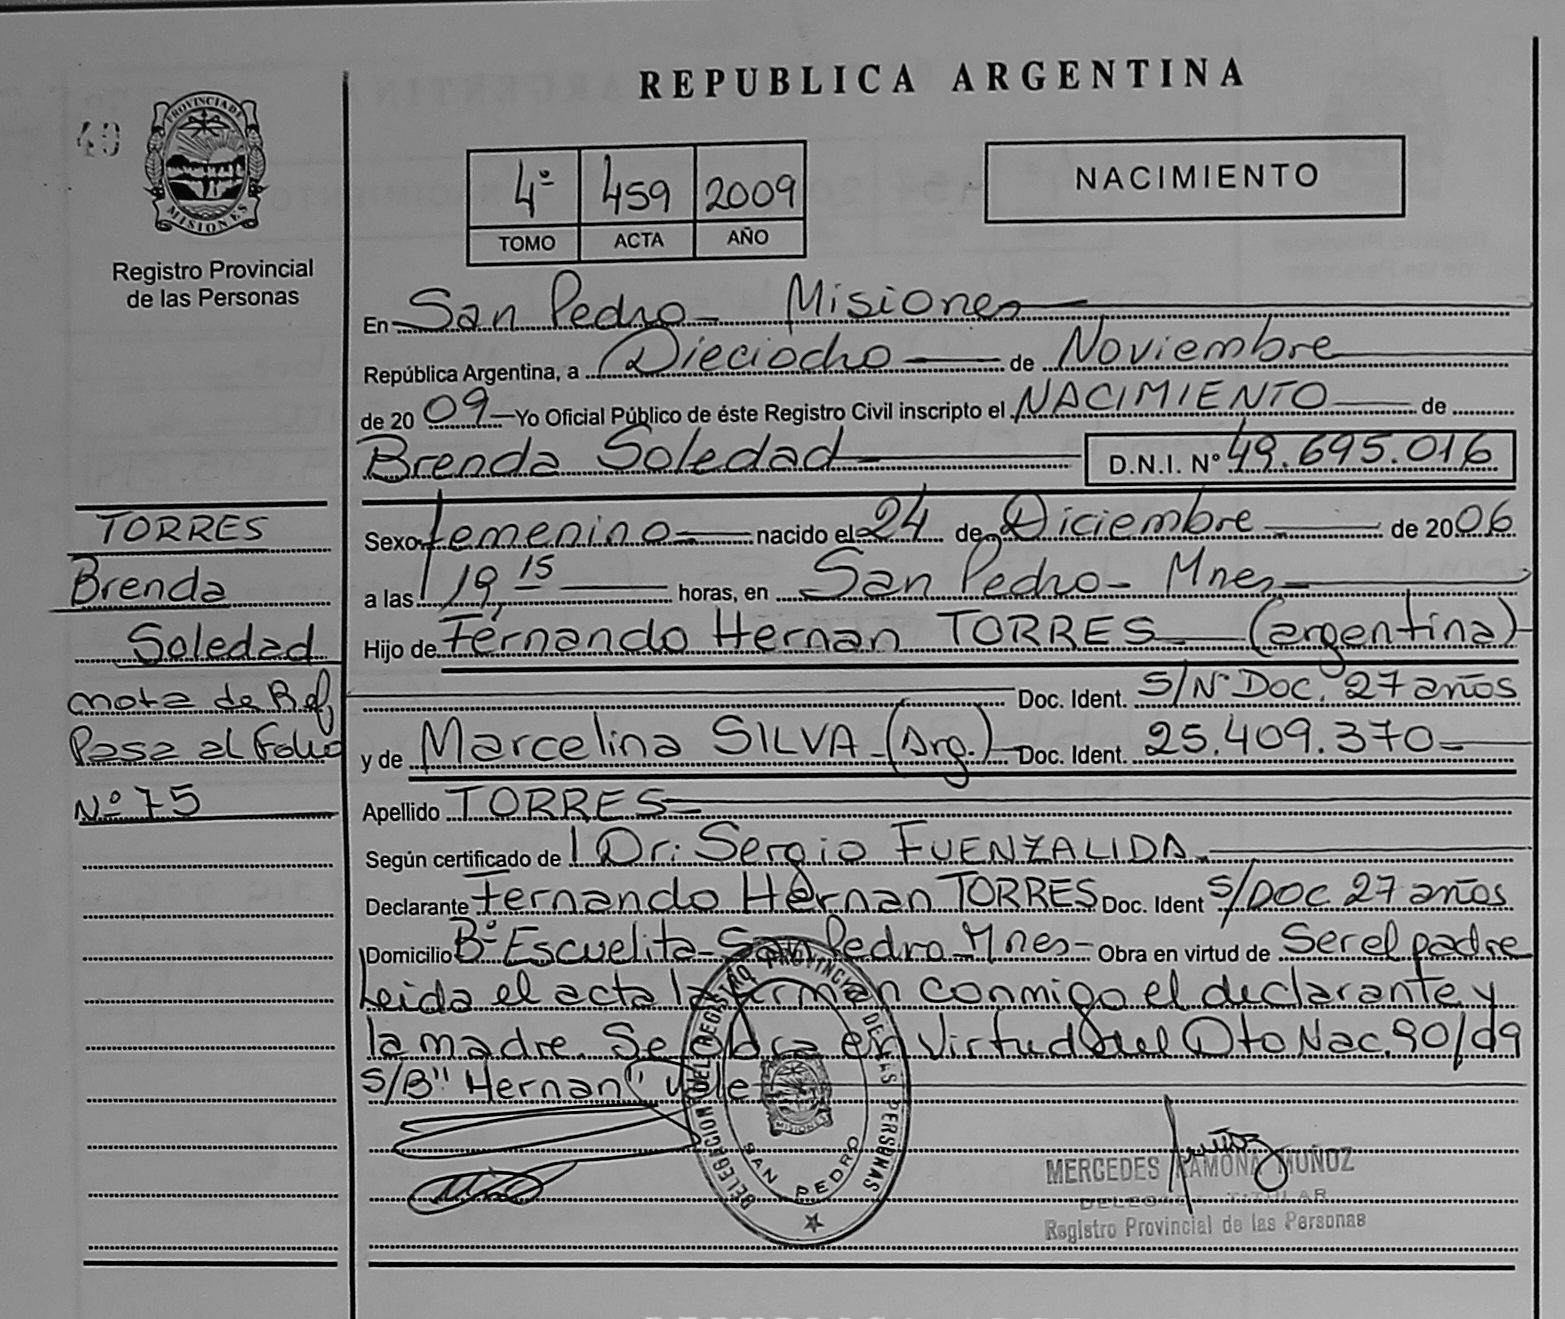 REPUBLICA ARGENTINA
49
PROVINCIA DE MISIONES
Registro Provincial
de las Personas
4º 459 2009
TOMO ACTA AÑO
NACIMIENTO
En San Pedro - Misiones
República Argentina, a Dieciocho de Noviembre
de 2009 Yo Oficial Público de éste Registro Civil inscripto el NACIMIENTO de
Brenda Soledad D.N.I. Nº 49.695.016
Sexo femenino nacido el 24 de Diciembre de 2006
a las 19,15 horas, en San Pedro - Mnes
Hijo de Fernando Hernan TORRES (argentina)
Doc. Ident. S/Nº Doc. 27 años
y de Marcelina SILVA (Arg.) Doc. Ident. 25.409.370
Apellido TORRES
Según certificado de Dr: Sergio FUENZALIDA
Declarante Fernando Hernan TORRES Doc. Ident S/DOC 27 años
Domicilio Bº Escuelita - San Pedro Mnes - Obra en virtud de Ser el padre
Leida el acta la firman conmigo el declarante y
la madre. Se labra en Virtud del Dto Nac. 90/09
S/B "Hernan" Vale
TORRES
Brenda
Soledad
nota de Ref
Pasa al Folio
Nº 75
DELEGACION DEL REGISTRO PROVINCIAL DE LAS PERSONAS
MISIONES
SAN PEDRO
MERCEDES RAMONA MUÑOZ
DELEGADA TITULAR
Registro Provincial de las Personas